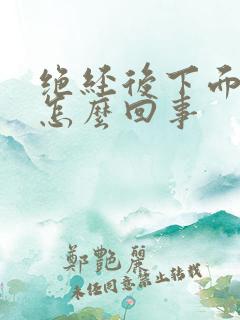 绝经後下而
怎麼回事
鄭艷麗
未经同意禁止转载